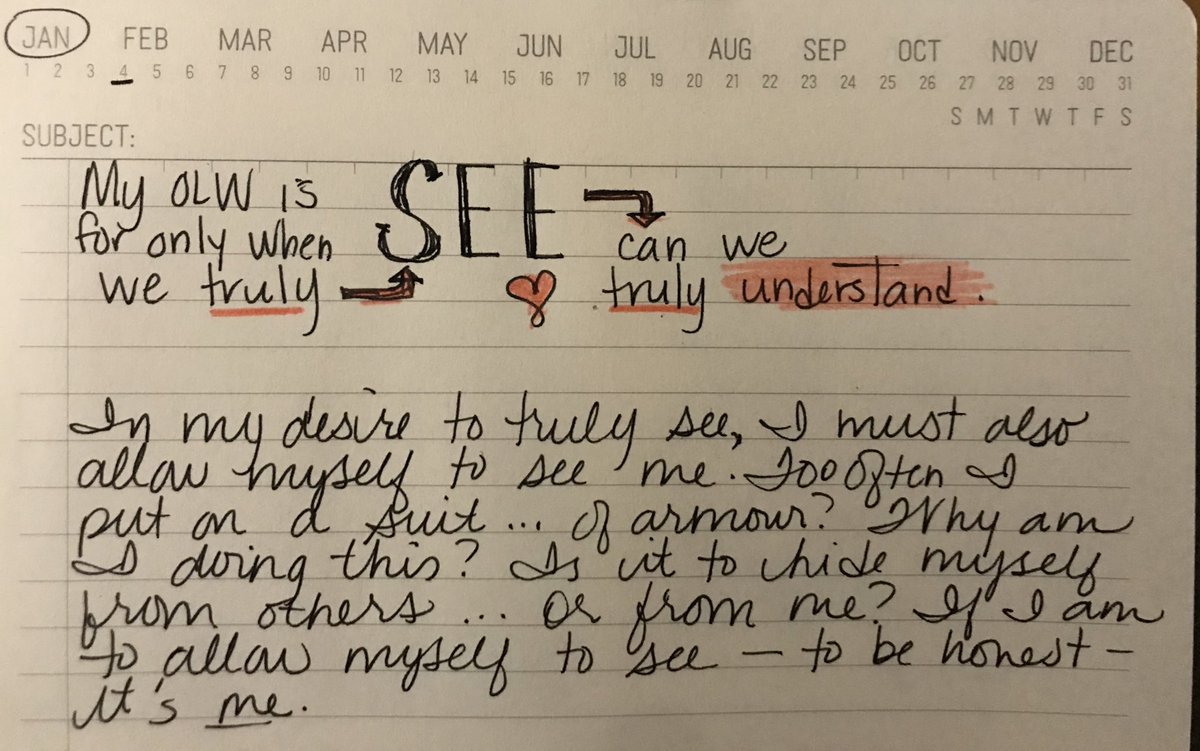 JAN FEB MAR APR MAY JUN JUL AUG SEP OCT NOV DEC
1 2 3 4 5 6 7 8 9 10 11 12 13 14 15 16 17 18 19 20 21 22 23 24 25 26 27 28 29 30 31
S M T W T F S
SUBJECT:
My OLW is SEE
for only when can we
we truly truly understand.
In my desire to truly see, I must also
allow myself to see me. Too often I
put on a suit... of armour? Why am
I doing this? Is it to hide myself
from others... or from me? If I am
to allow myself to see - to be honest -
it's me.